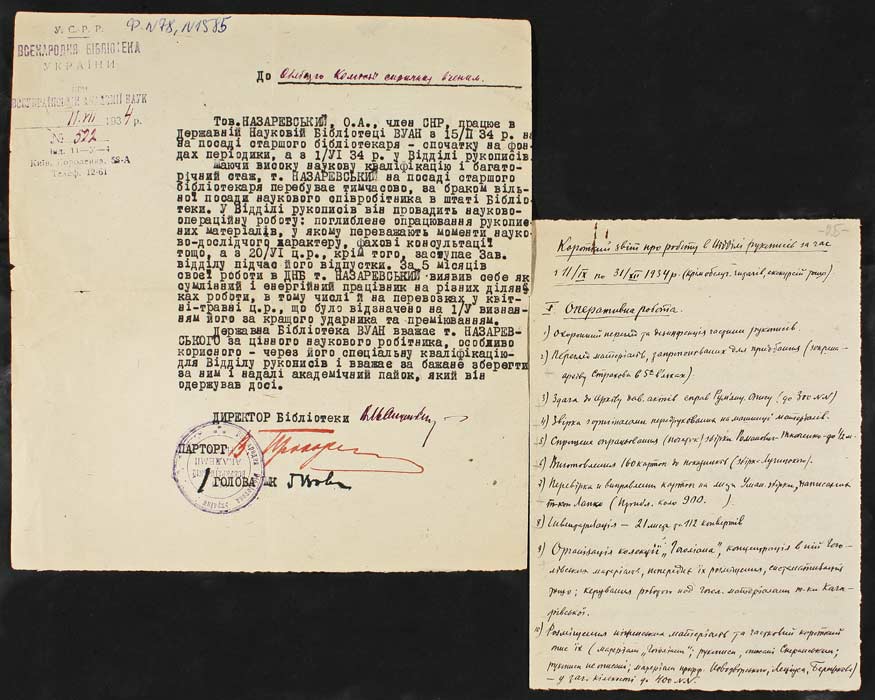 Ф. №78, №1585
У.С.Р.Р.
ВСЕНАРОДНЯ БІБЛІОТЕКА
УКРАЇНИ
при
ВСЕУКРАЇНСЬКІЙ АКАДЕМІЇ НАУК
11.VII 1934 р.
№ 522
Київ, Короленка, 58-А
Телеф. 12-61
До Обл.бюро Комісії сприяння вченим.
Тов. НАЗАРЕВСЬКИЙ, О.А., член СНР, працює в
Державній Науковій Бібліотеці ВУАН з 15/ІІ 34 р. на
на посаді старшого бібліотекаря - спочатку на фон-
дах періодики, а з 1/VI 34 р. у Відділі рукописів.
Маючи високу наукову кваліфікацію і багато-
річний стаж, т. НАЗАРЕВСЬКИЙ на посаді старшого
бібліотекаря перебуває тимчасово, за браком віль-
ної посади наукового співробітника в штаті Бібліо-
теки. У Відділі рукописів він провадить науково-
операційну роботу: поглиблене опрацювання рукопис-
них матеріалів, у якому переважають моменти науко-
во-дослідчого характеру, фахові консультації
тощо, а з 20/VI ц.р., крім того, заступає Зав.
відділу підчас його відпустки. За 5 місяців
своєї роботи в ДНБ т. НАЗАРЕВСЬКИЙ виявив себе як
сумлінний і енергійний працівник на різних ділян-
ках роботи, в тому числі й на перевозках у квіт-
ні-травні ц.р., що було відзначено на 1/V визнан-
ням його за кращого ударника та преміюванням.
Державна Бібліотека ВУАН вважає т. НАЗАРЕВ-
СЬКОГО за цінного наукового робітника, особливо
корисного - через його спеціальну кваліфікацію-
для Відділу рукописів і вважає за бажане зберегти
за ним і надалі академічний пайок, який він
одержував досі.
ДИРЕКТОР Бібліотеки
ПАРТОРГ
ГОЛОВА МК
Короткий звіт про роботу в Відділі рукописів за час
з 11/IX по 31/XII 1934 р. (Крім обслуг. читачів, екскурсій тощо)
I Оперативна робота.
1) Охоронний перегляд та дезинфекція частини рукописів.
2) Перегляд матеріалів, запропонованих для придбання (зокрема
архіву Страхова в 5-х пачках)
3) Здача до Архіву дав. актів справ Румянц. Опису (до 300 №№)
4) Звірка з оригіналами передрукованих на машинці матеріалів.
5) Спрощене опрацювання (початок) збірки Романович-Ткаченко - до 1/2 м.
6) Виготовлення 160 карток до покажчика (збірка Лучицького).
7) Перевірка й виправлення карток на листи Уман. збірки, написаних
т-кою Лапко (Прибл. коло 900.)
8) Інвентаризація - 21 листа та 112 конвертів
9) Організація колекції „Гоголіана", концентрація в ній Гого-
лівських матеріалів, попереднє їх розміщення, систематизація
тощо; керування роботою над гогол. матеріалами т-ки Кага-
рлівської.
10) Розміщення ніжинських матеріалів та частковий короткий
опис їх (матеріали „Гоголіани"; рукописи, описані Сперанським;
рукописи не описані; матеріали проф.
- у заг. кількості до 400 №№.